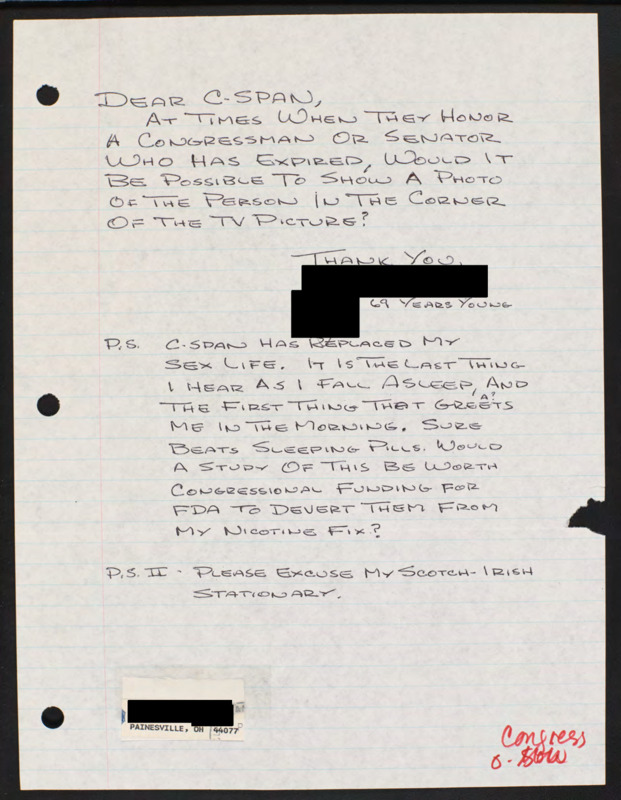 DEAR C-SPAN,
AT TIMES WHEN THEY HONOR
A CONGRESSMAN OR SENATOR
WHO HAS EXPIRED, WOULD IT
BE POSSIBLE TO SHOW A PHOTO
OF THE PERSON IN THE CORNER
OF THE TV PICTURE?
THANK YOU,
69 YEARS YOUNG
P.S. C-SPAN HAS REPLACED MY
SEX LIFE. IT IS THE LAST THING
I HEAR AS I FALL ASLEEP, AND
THE FIRST THING THAT GREETS
A?
ME IN THE MORNING. SURE
BEATS SLEEPING PILLS. WOULD
A STUDY OF THIS BE WORTH
CONGRESSIONAL FUNDING FOR
FDA TO DEVERT THEM FROM
MY NICOTINE FIX?
P.S. II - PLEASE EXCUSE MY SCOTCH-IRISH
STATIONARY.
PAINESVILLE, OH 44077
Congress